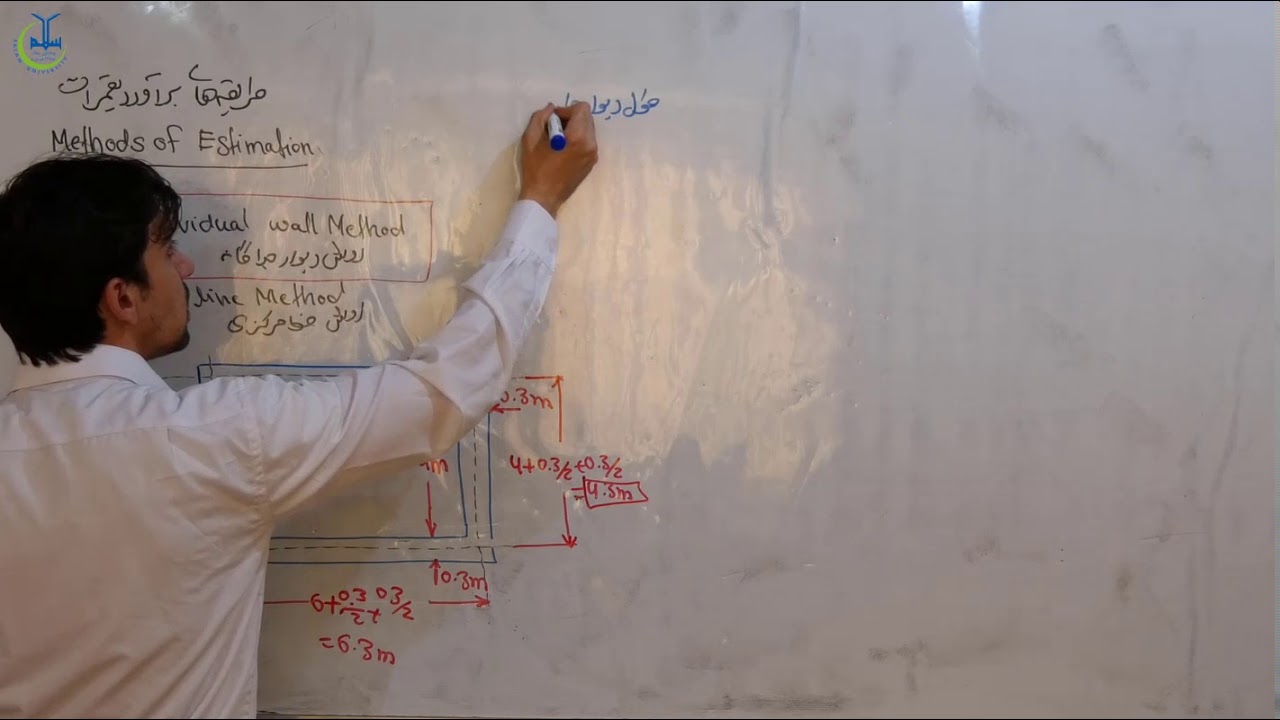 طریقه‌های برآورد تعمیرات
Methods of Estimation
vidual wall Method
روش دیوار جداگانه
line Method
روش خط مرکزی
طول دیوار
0.3m
4+0.3/2+0.3/2
=4.3m
m
0.3m
6+0.3/2+0.3/2
=6.3m
سلام